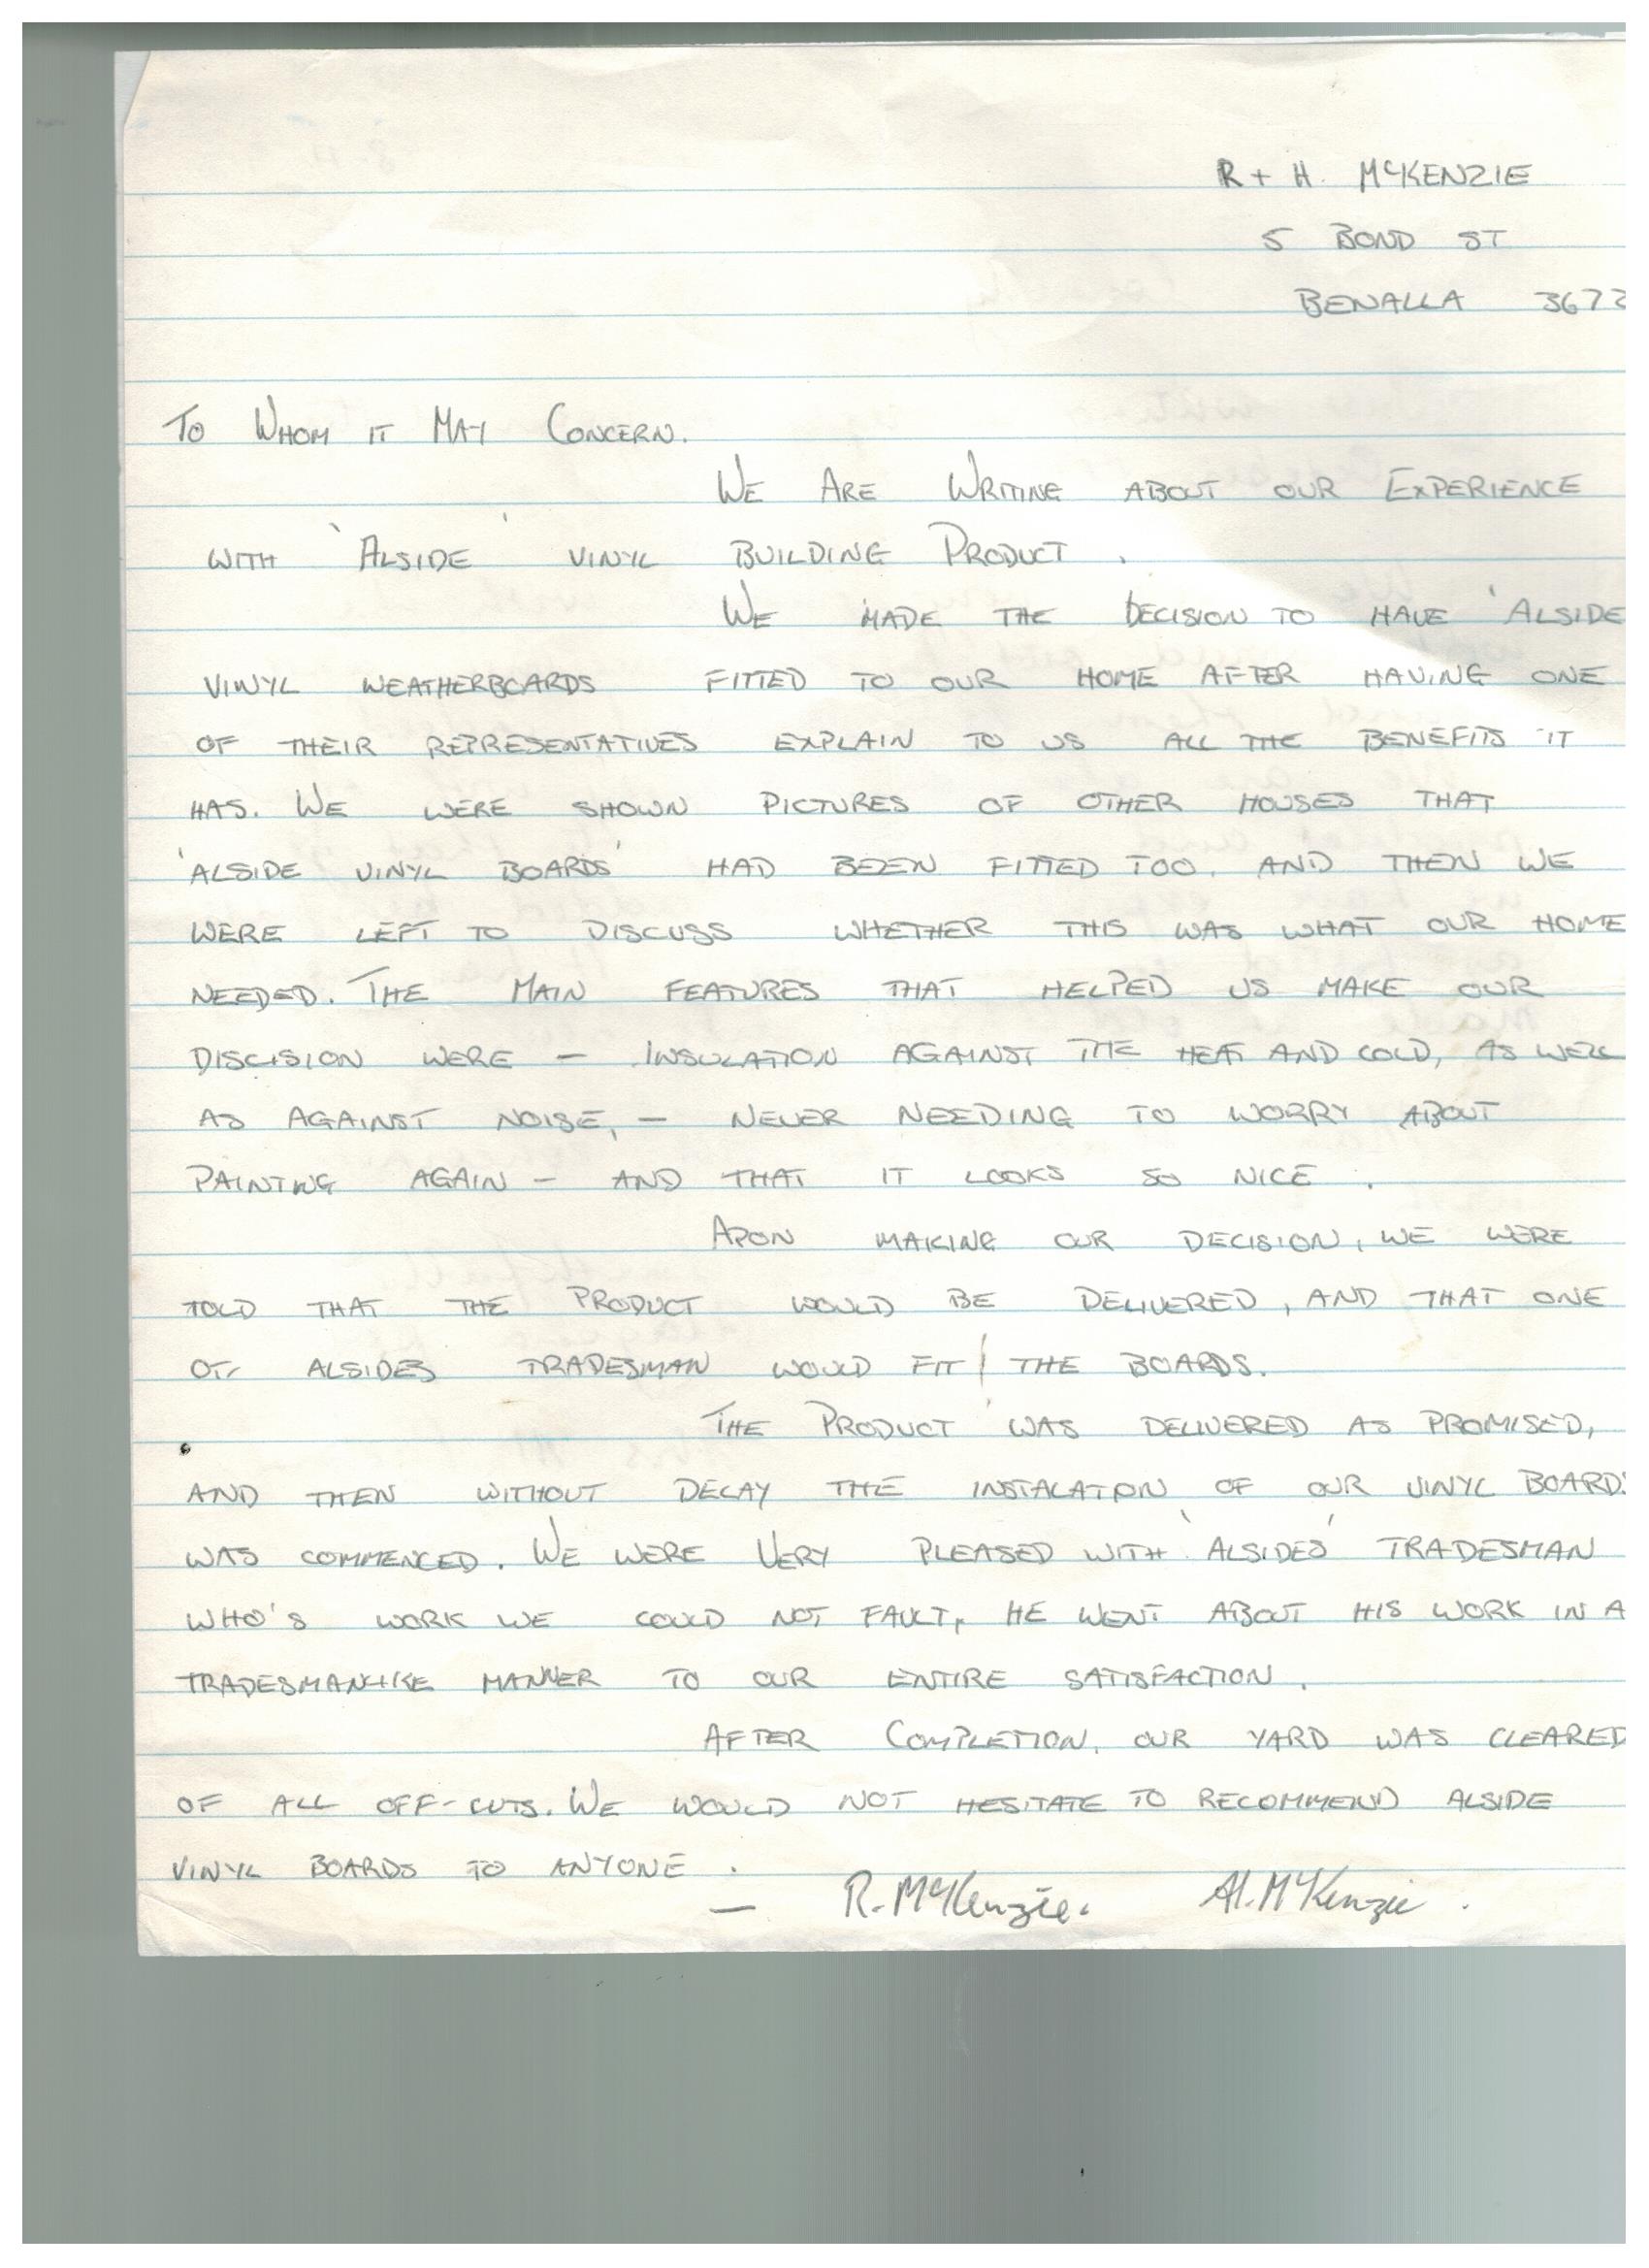 R + H. McKENZIE
5 BOND ST
BENALLA 3672
To Whom it May Concern.
We Are Writing about our Experience
with 'Alside' vinyl building Product.
We made the Decision to have 'Alside
vinyl weatherboards fitted to our home after having one
of their representatives explain to us all the benefits it
has. We were shown pictures of other houses that
'Alside vinyl boards' had been fitted too, and then we
were left to discuss whether this was what our home
needed. The Main features that helped us make our
discision were – insulation against the heat and cold, as well
as against noise, – never needing to worry about
painting again – and that it looks so nice.
Apon making our decision, we were
told that the product would be delivered, and that one
of Alsides tradesman would fit the boards.
The Product was delivered as promised,
and then without delay the instalation of our vinyl boards
was commenced. We were Very pleased with 'Alsides' tradesman
who's work we could not fault, he went about his work in a
tradesmanlike manner to our entire satisfaction.
After Completion, our yard was cleared
of all off-cuts. We would not hesitate to recommend Alside
vinyl boards to anyone.
– R. McKenzie. H. McKenzie.